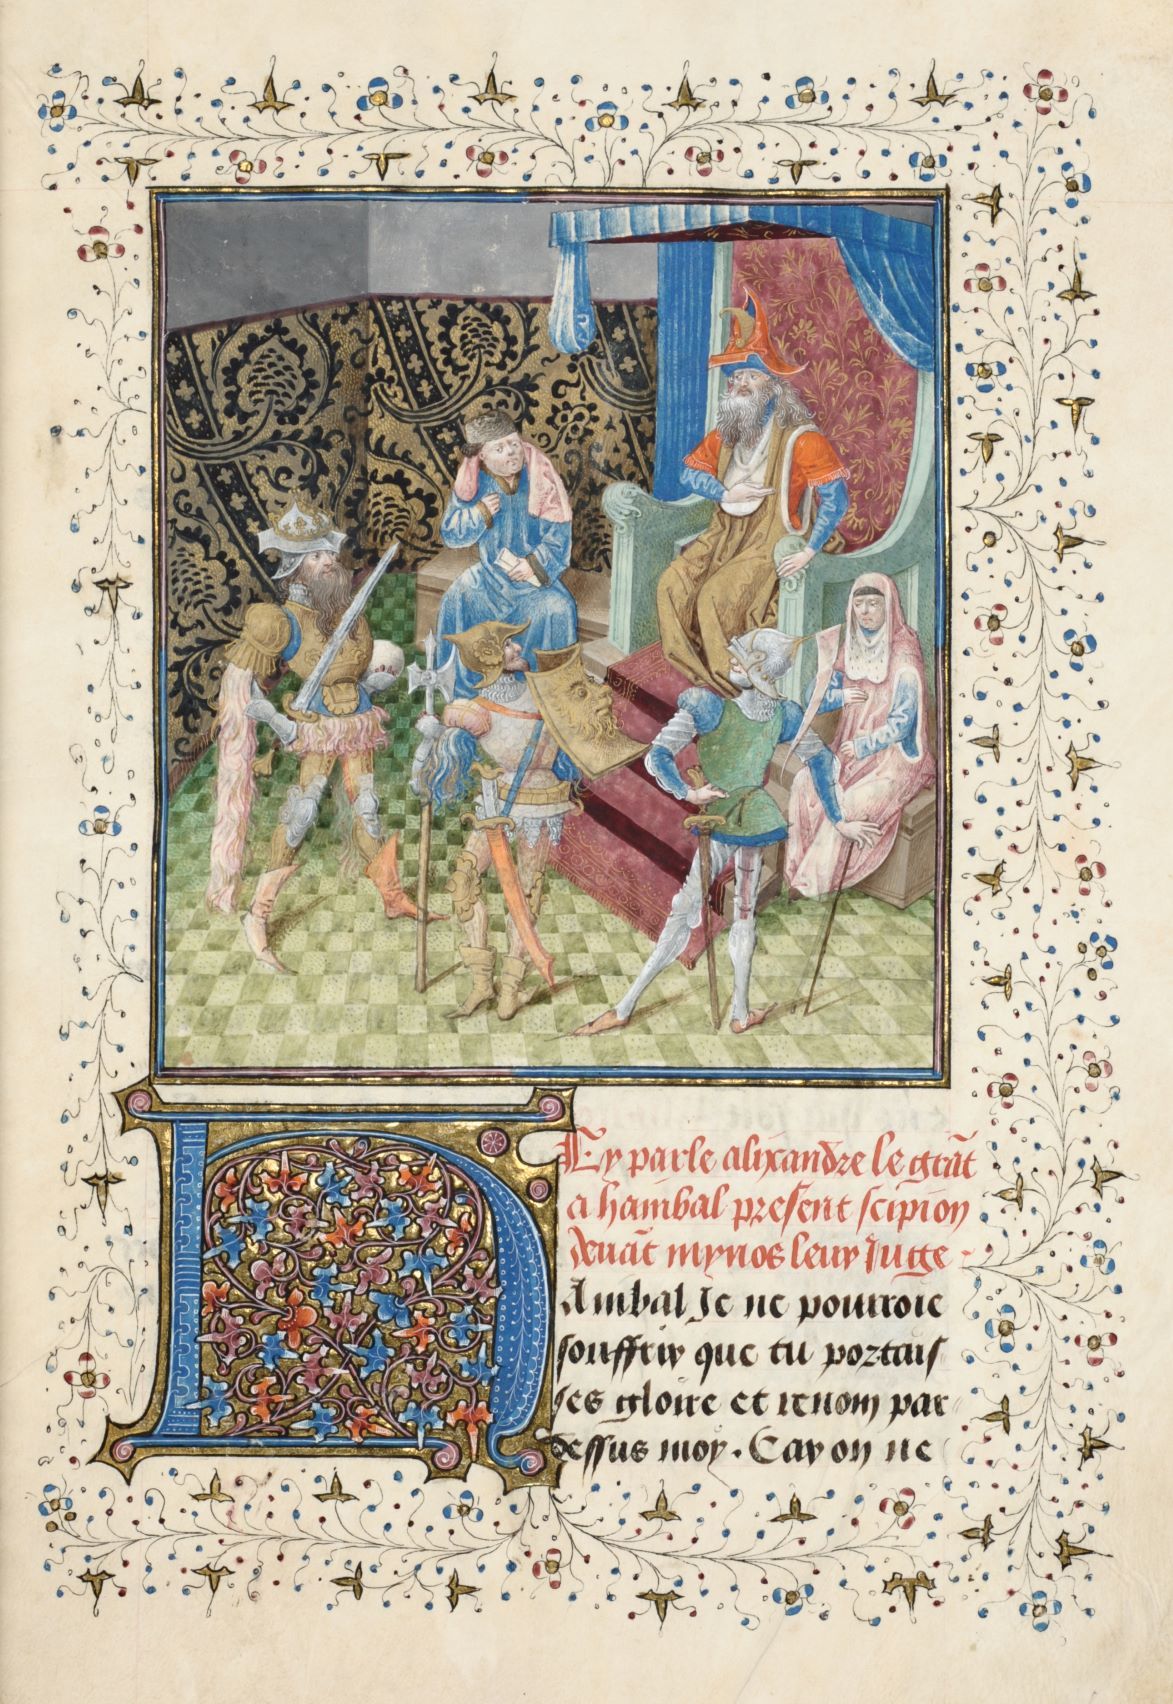 Cy parle alixandre le grāt
a hanibal present scipion
deuāt mynos leur Juge
Hanibal Je ne pourroie
souffrir que tu portais
ses gloire et renom par
dessus moy. Car on ne